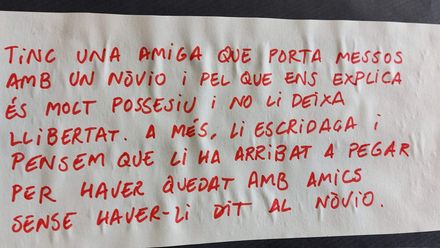 TINC UNA AMIGA QUE PORTA MESSOS
AMB UN NÒVIO I PEL QUE ENS EXPLICA
ÉS MOLT POSSESIU I NO LI DEIXA
LLIBERTAT. A MÉS, LI ESCRIDAGA I
PENSEM QUE LI HA ARRIBAT A PEGAR
PER HAVER QUEDAT AMB AMICS
SENSE HAVER-LI DIT AL NÒVIO.